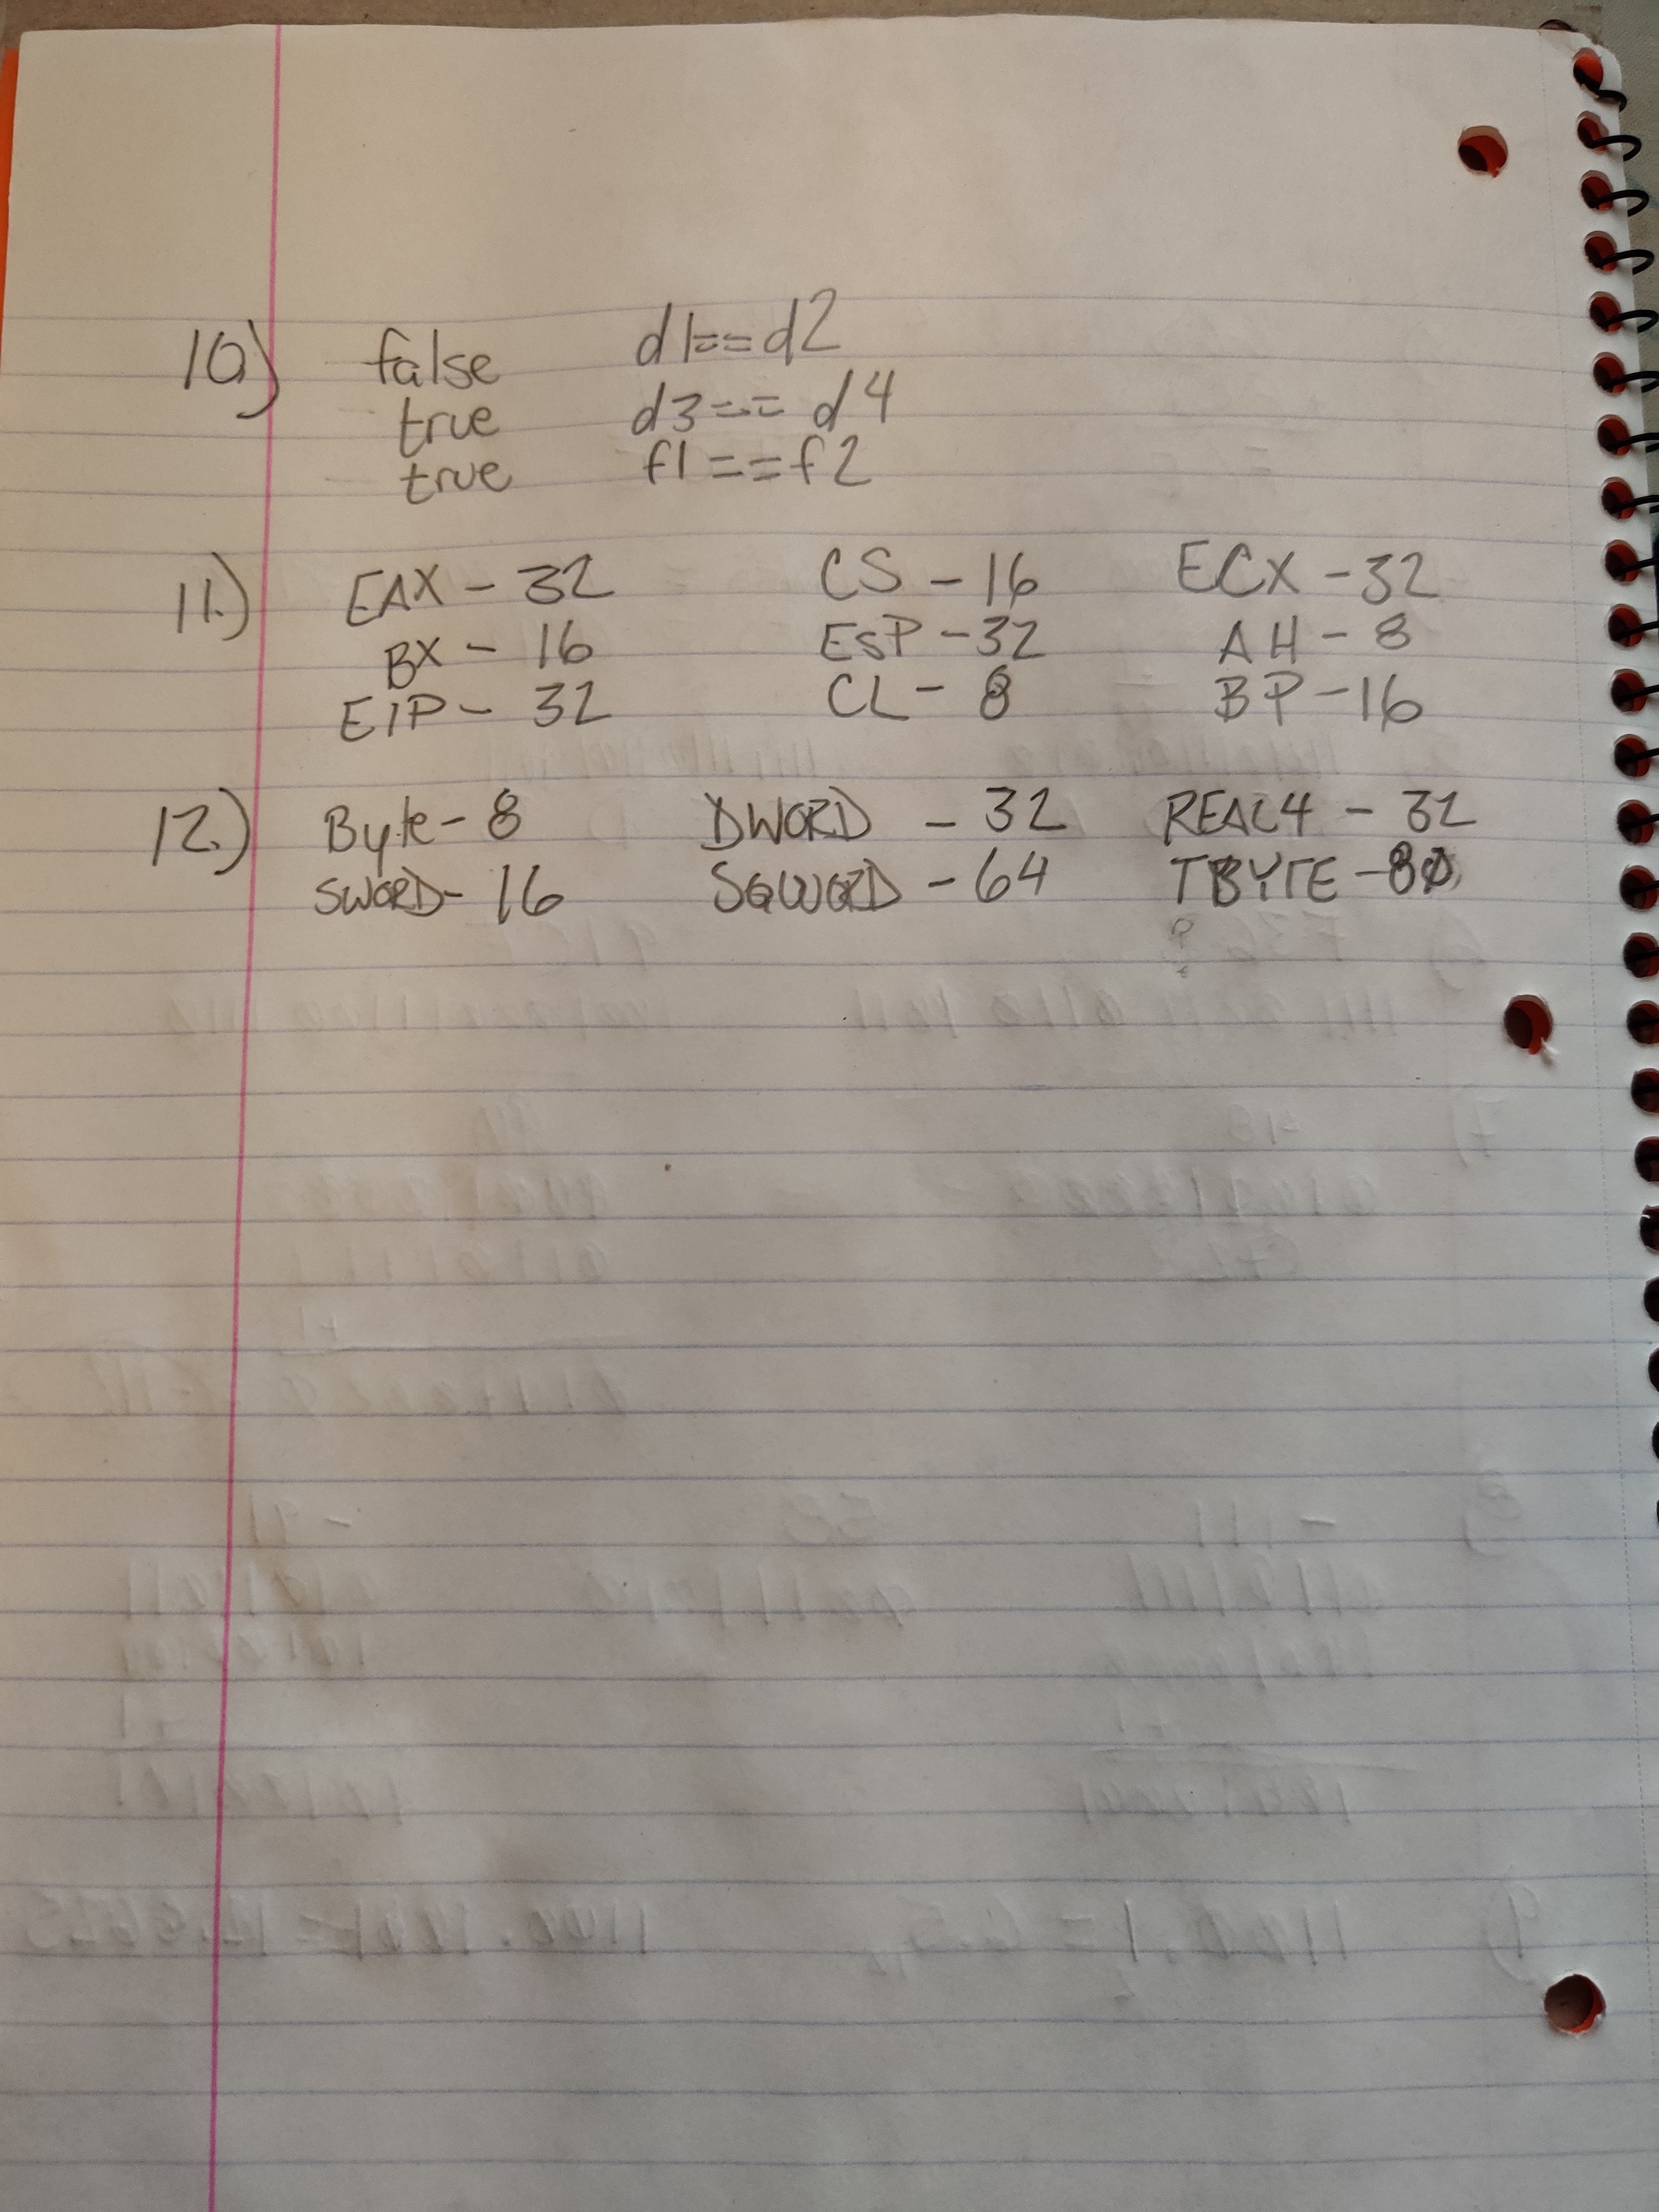 10) false d1==d2
true d3== d4
true f1==f2
11.) EAX - 32 CS - 16 ECX - 32
BX - 16 ESP - 32 AH - 8
EIP - 32 CL - 8 BP - 16
12.) Byte - 8 DWORD - 32 REAL4 - 32
SWORD - 16 SQWORD - 64 TBYTE - 80